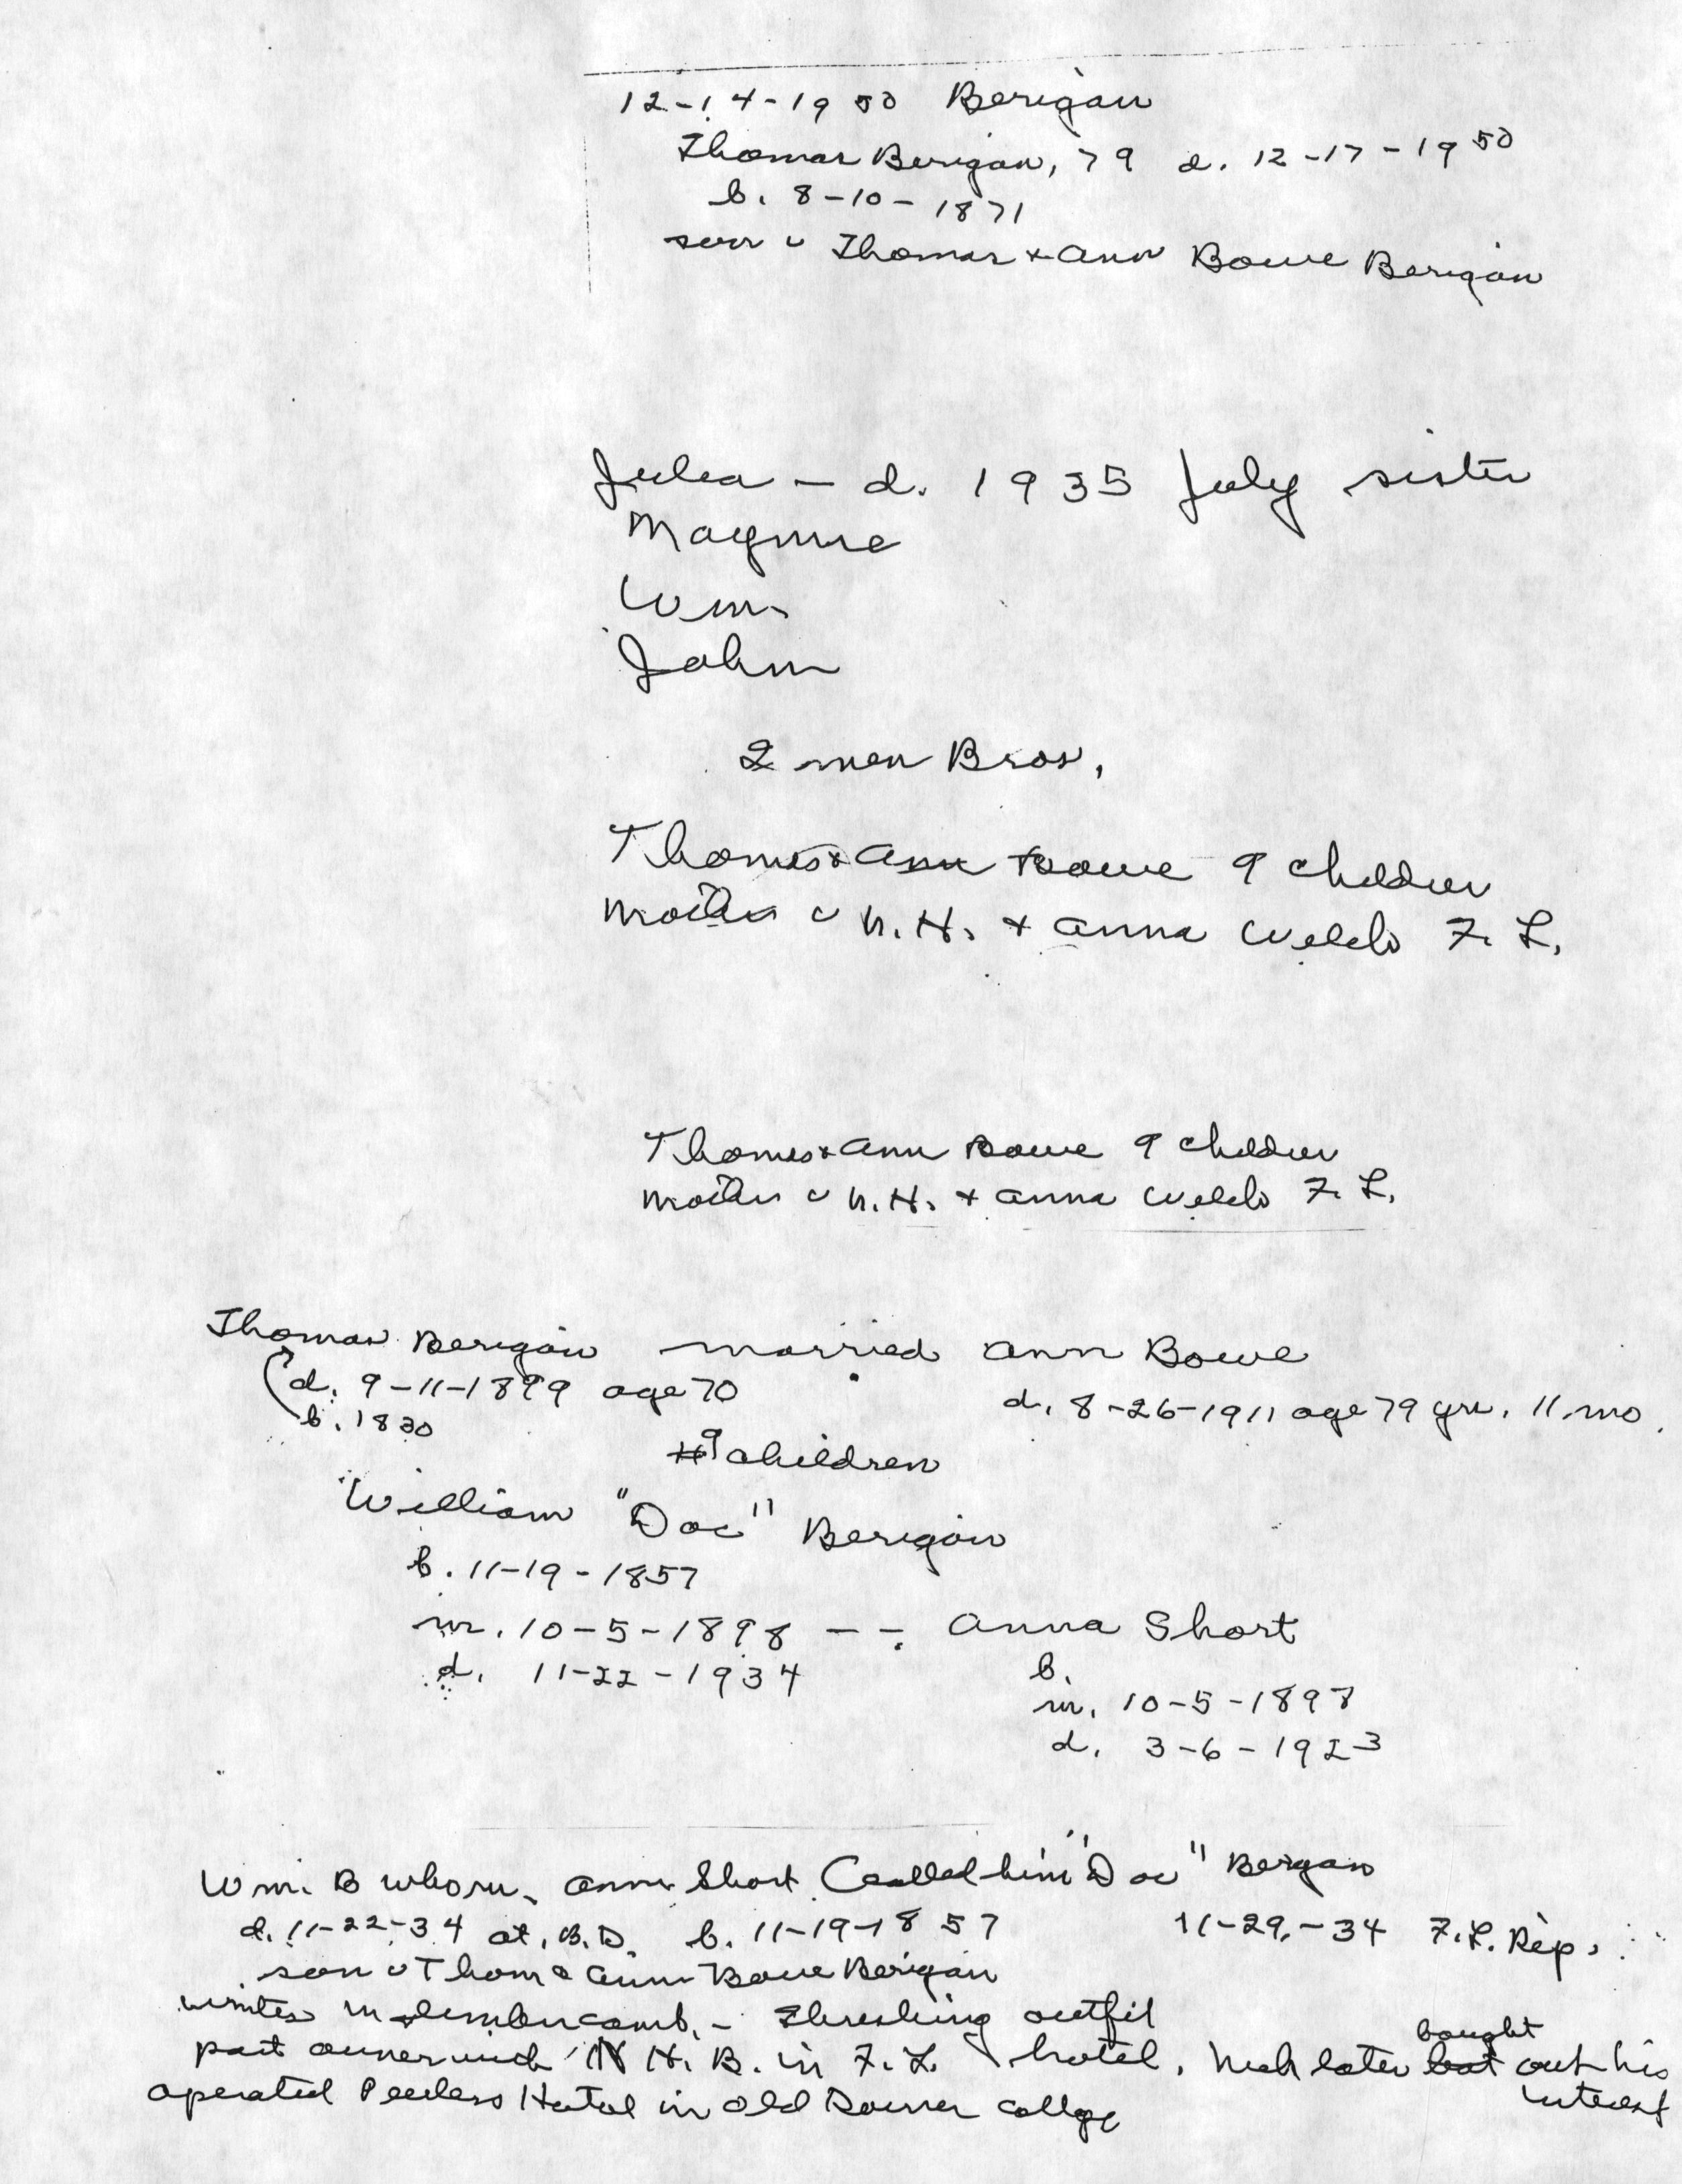 12-14-1950 Berigan
Thomas Berigan, 79 d. 12-17-1950
b. 8-10-1871
son Thomas & Ann Bowe Berigan
Julia - d. 1935 July sister
Maymie
Wm.
John
2 men Bros,
Thomas & Ann Bowe 9 children
mother N.H. & Anna Welch F. L.
Thomas & Ann Bowe 9 children
mother N.H. & Anna Welch F. L.
Thomas Berigan married Ann Bowe
d. 9-11-1899 age 70 d. 8-26-1911 age 79 yrs. 11 mo.
b. 1830
9 children
William "Doc" Berigan
b. 11-19-1857
m. 10-5-1898 -- Anna Short
d. 11-22-1934 b.
m. 10-5-1898
d. 3-6-1923
Wm. B who m. Ann Short (called him "Doc" Bergan
d. 11-22-34 at B.D. b. 11-19-1857 11-29-34 F.L. Rep.
son Thom & Ann Bowe Berigan
winters in camb. - Threshing outfit
part owner with N.H.B. in F.L. hotel, Neh later bought out his interest
operated Peerless Hotel in old Downer college